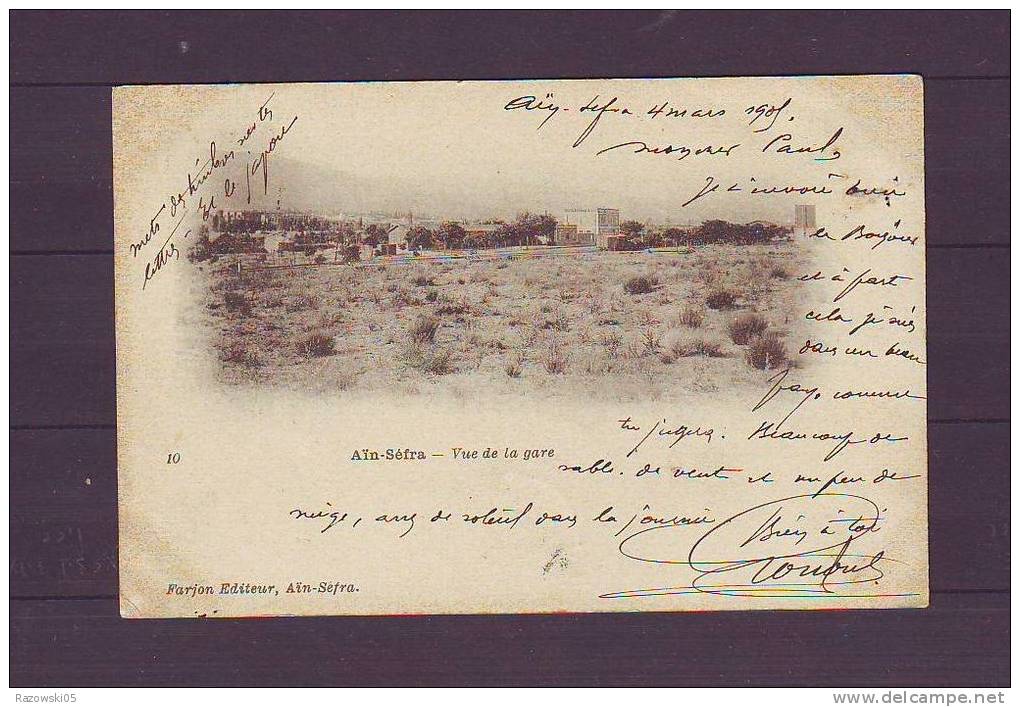 Aïn-Sefra 4 mars 1905.
mon cher Paul,
Je t'envoie bien
le Bonjour
et à part
cela je suis
dans un beau
pays, comme
tu jugera. Beaucoup de
sable. de vent et un peu de
neige, avec de soleil dans la journée
Bien à toi
mets des timbres sur tes
lettres - Et le Japon
10
Aïn-Séfra — Vue de la gare
Farjon Editeur, Aïn-Séfra.
Razowski05
www.delcampe.net